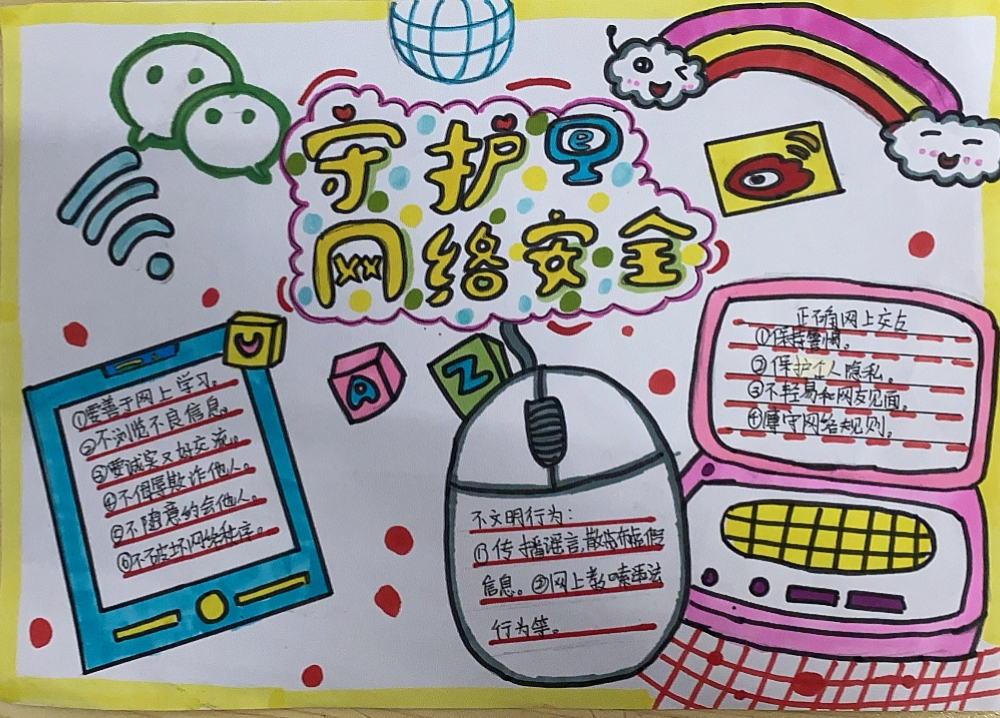 守护
e
网络安全
U
A
Z
①要善于网上学习。
②不浏览不良信息。
③要诚实友好交流。
④不侮辱欺诈他人。
⑤不随意约会他人。
⑥不破坏网络秩序。
不文明行为:
①传播谣言,散布虚假
信息。②网上教唆违法
行为等。
正确网上交友
①保持警惕。
②保护个人隐私。
③不轻易和网友见面。
④遵守网络规则。